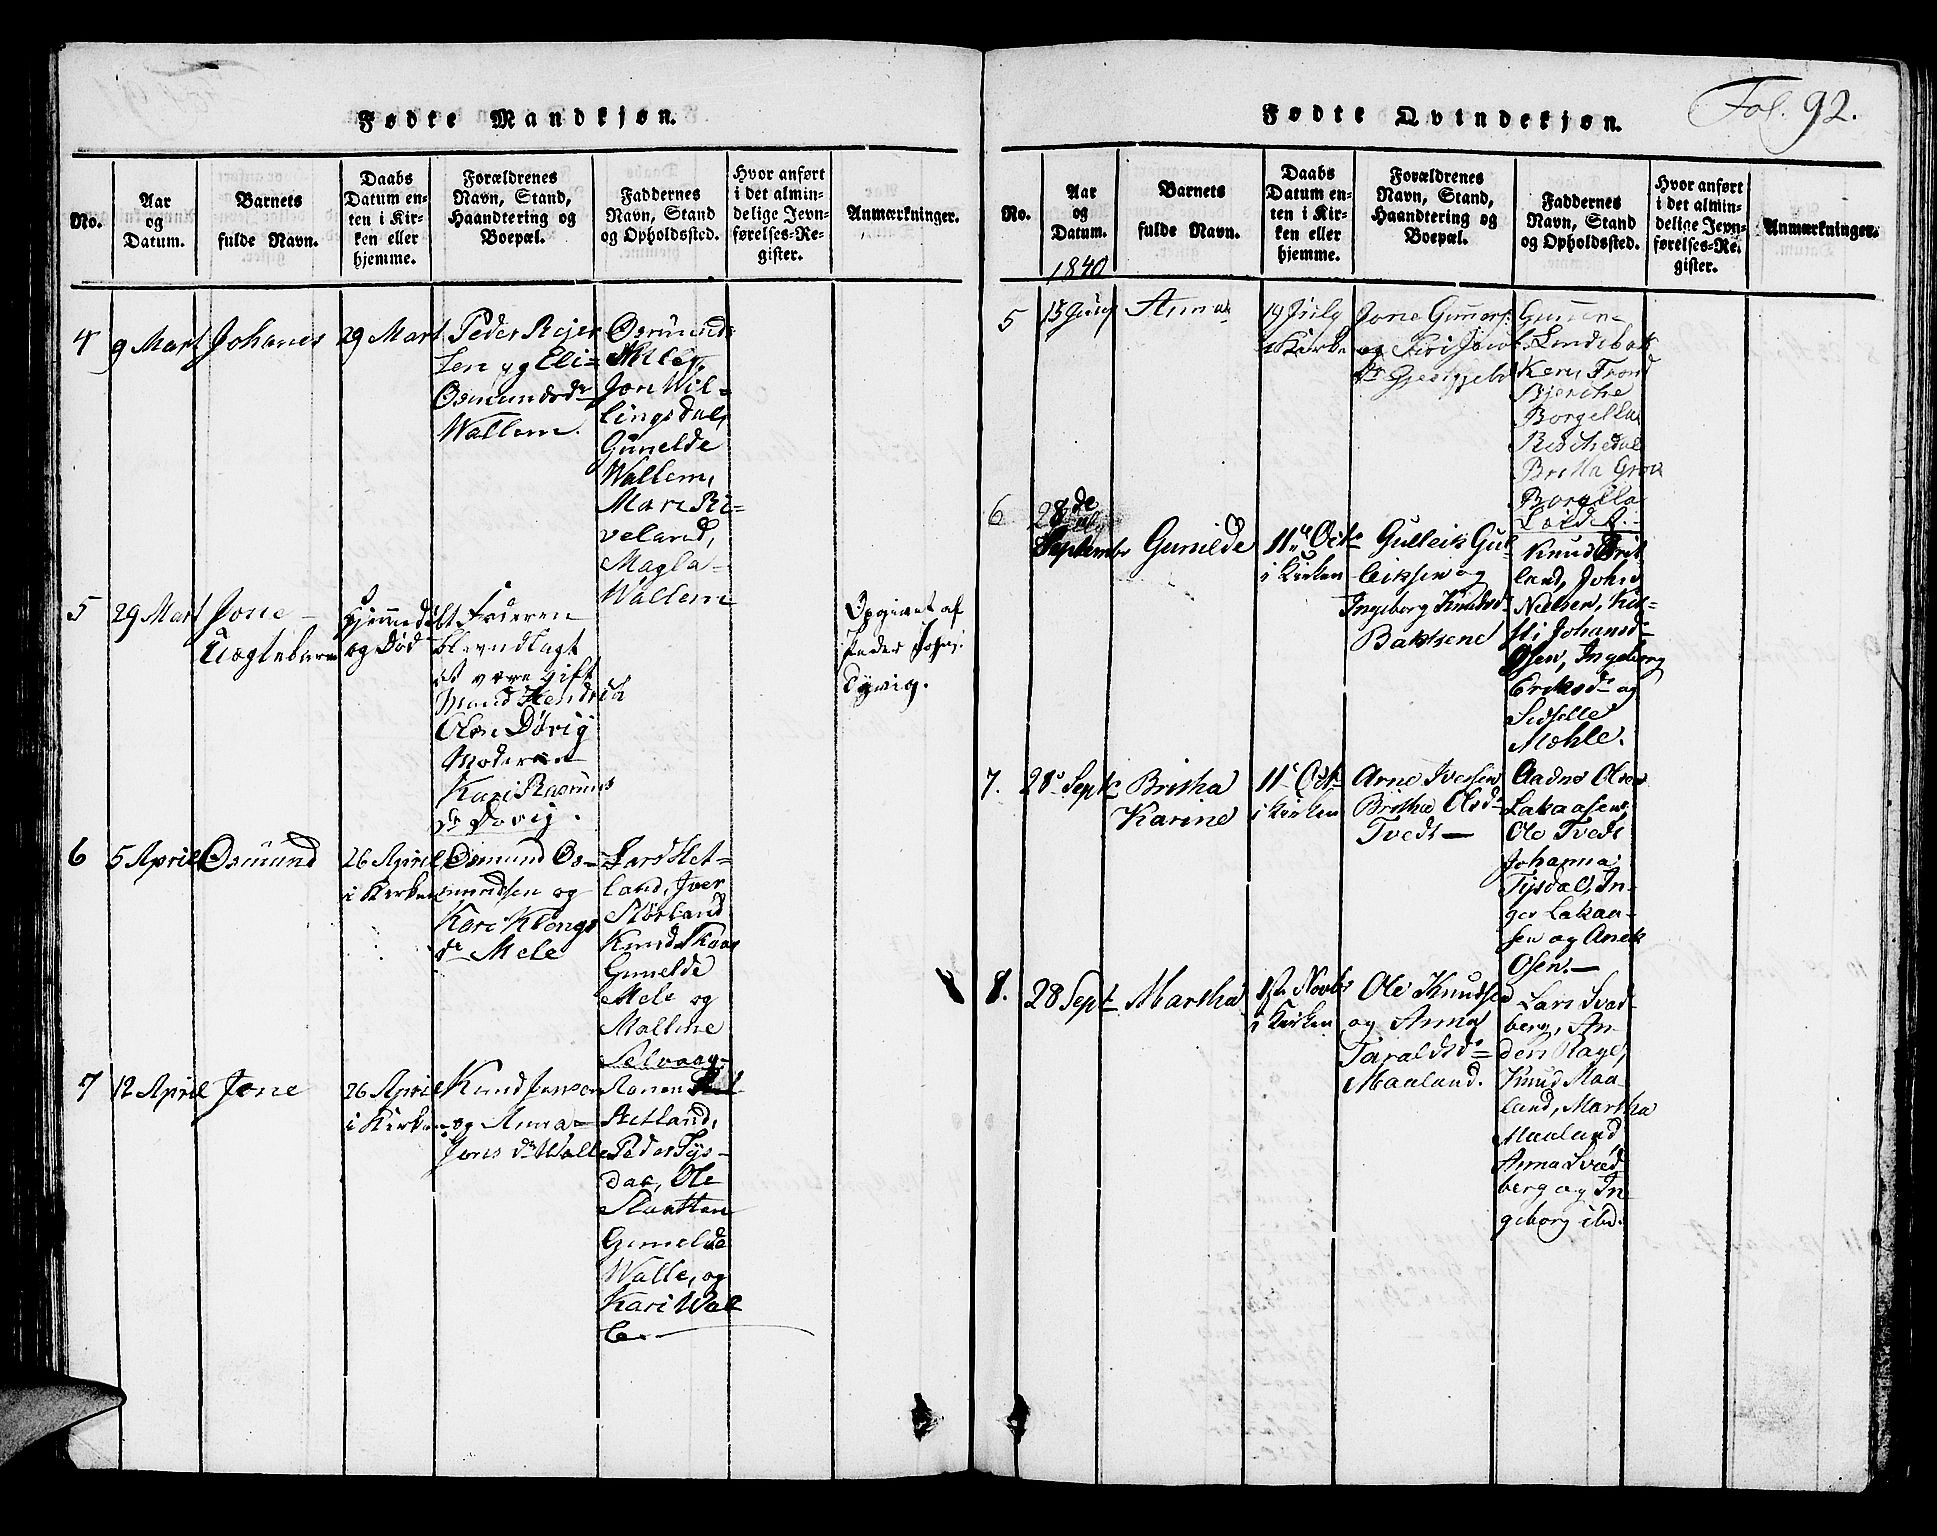 Fødte Mandkjøn.
No.
Aar
og
Datum.
Barnets
fulde Navn.
Daabs
Datum en-
ten i Kir-
ken eller
hjemme.
Forældrenes
Navn, Stand,
Haandtering og
Boepæl.
Faddernes
Navn, Stand
og Opholdssted.
Hvor anført
i det almin-
delige Jevn-
førelses-Re-
gister.
Anmærkninger.
4
9 Mart
Johanes
29 Mart
Peder Rejer
sen og Eli=
Osmundsdr
Wallem.
Osmund
Jone Wil-
lingsdal,
Gunelde
Wallem,
Mari Ri-
veland,
Magla
Wallem
5
29 Mart
Jone
Uægtebarn
hjemmedøbt
og Død
Faderen
blev udlagt
at være gift
Mand Hendrik
Olsen Døvig
Moderen
Kari Rasmus
dr Dovig.
Opgivet af
Peder
6
5 April
Osmund
26 April
i Kirken
Osmund Os-
mundsen og
Kari Klengs
dr Mele
Lars Het-
land, Iver
Størland
Knud Skaar
Gunelde
Mele og
Mallene
Selvaag.
7
12 April
Jone
26 April
i Kirken
Knud Jonson
og Anna
Jons dr Walle
Aanen
Hetland,
Peder Tys-
dal, Ole
Slaatten
Gunelda
Walle, og
Kari Wal
le.
Fødte Qvindekjøn.
Fol. 92.
No.
Aar
og
Datum.
1840
Barnets
fulde Navn.
Daabs
Datum en-
ten i Kir-
ken eller
hjemme.
Forældrenes
Navn, Stand,
Haandtering og
Boepæl.
Faddernes
Navn, Stand
og Opholdssted.
Hvor anført
i det almin-
delige Jevn-
førelses-Re-
gister.
Anmærkninger.
5
Anna
19 July
i Kirke
Jone Gunders.
og Siri Jacob
dr
Gunder
Lindebak
Ken, Trond
Bjerche
Borgella
Reschedal
Britta
Borgella
6
28de
September
Gunilde
11te Octr
i Kirken
Gulleik Gul
leiksen og
Ingeborg Knudsdr
Baksene
Knud Brit
land, John
Nielsen, Kir-
sti Johansdr
Osen, Ingeborg
Eriksdr og
Sidselle
Mæhle.
7.
28 Septr
Britha
Karine
11 Octr
i Kirken
Arne Iversen
Britha Olsdr
Tvedt
Aadne Olsen
Lakaasen,
Ole Tvedt
Johanna
Tysdal, In-
ger Lakaa-
sen og Anek
Osen.
8.
28 Septr
Martha
1st Novbr
i Kirken
Ole Knudsen
og Anna
Taraldsdr
Maaland.
Lars Svad
berg, An-
ders Rage,
Knud Maa-
land, Martha
Maaland,
Anna Svad
berg og In
geborg ibd.